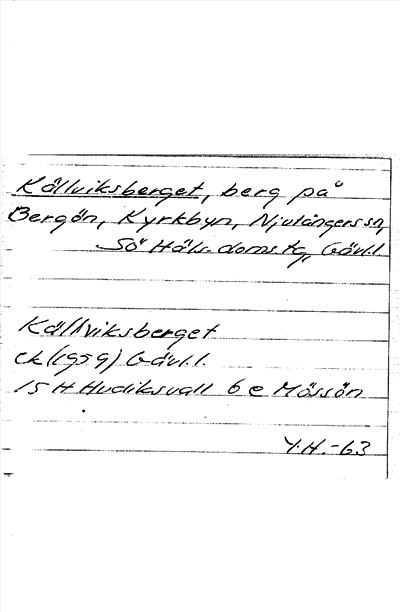 Källviksberget, berg på
Bergön, Kyrkbyn, Njutångers sn,
Sö Häls. doms. tg, Gävl.l.
Källviksberget
ek (1959) Gävl.l.
15 H Hudiksvall 6 e Mössön
Y.H.-63